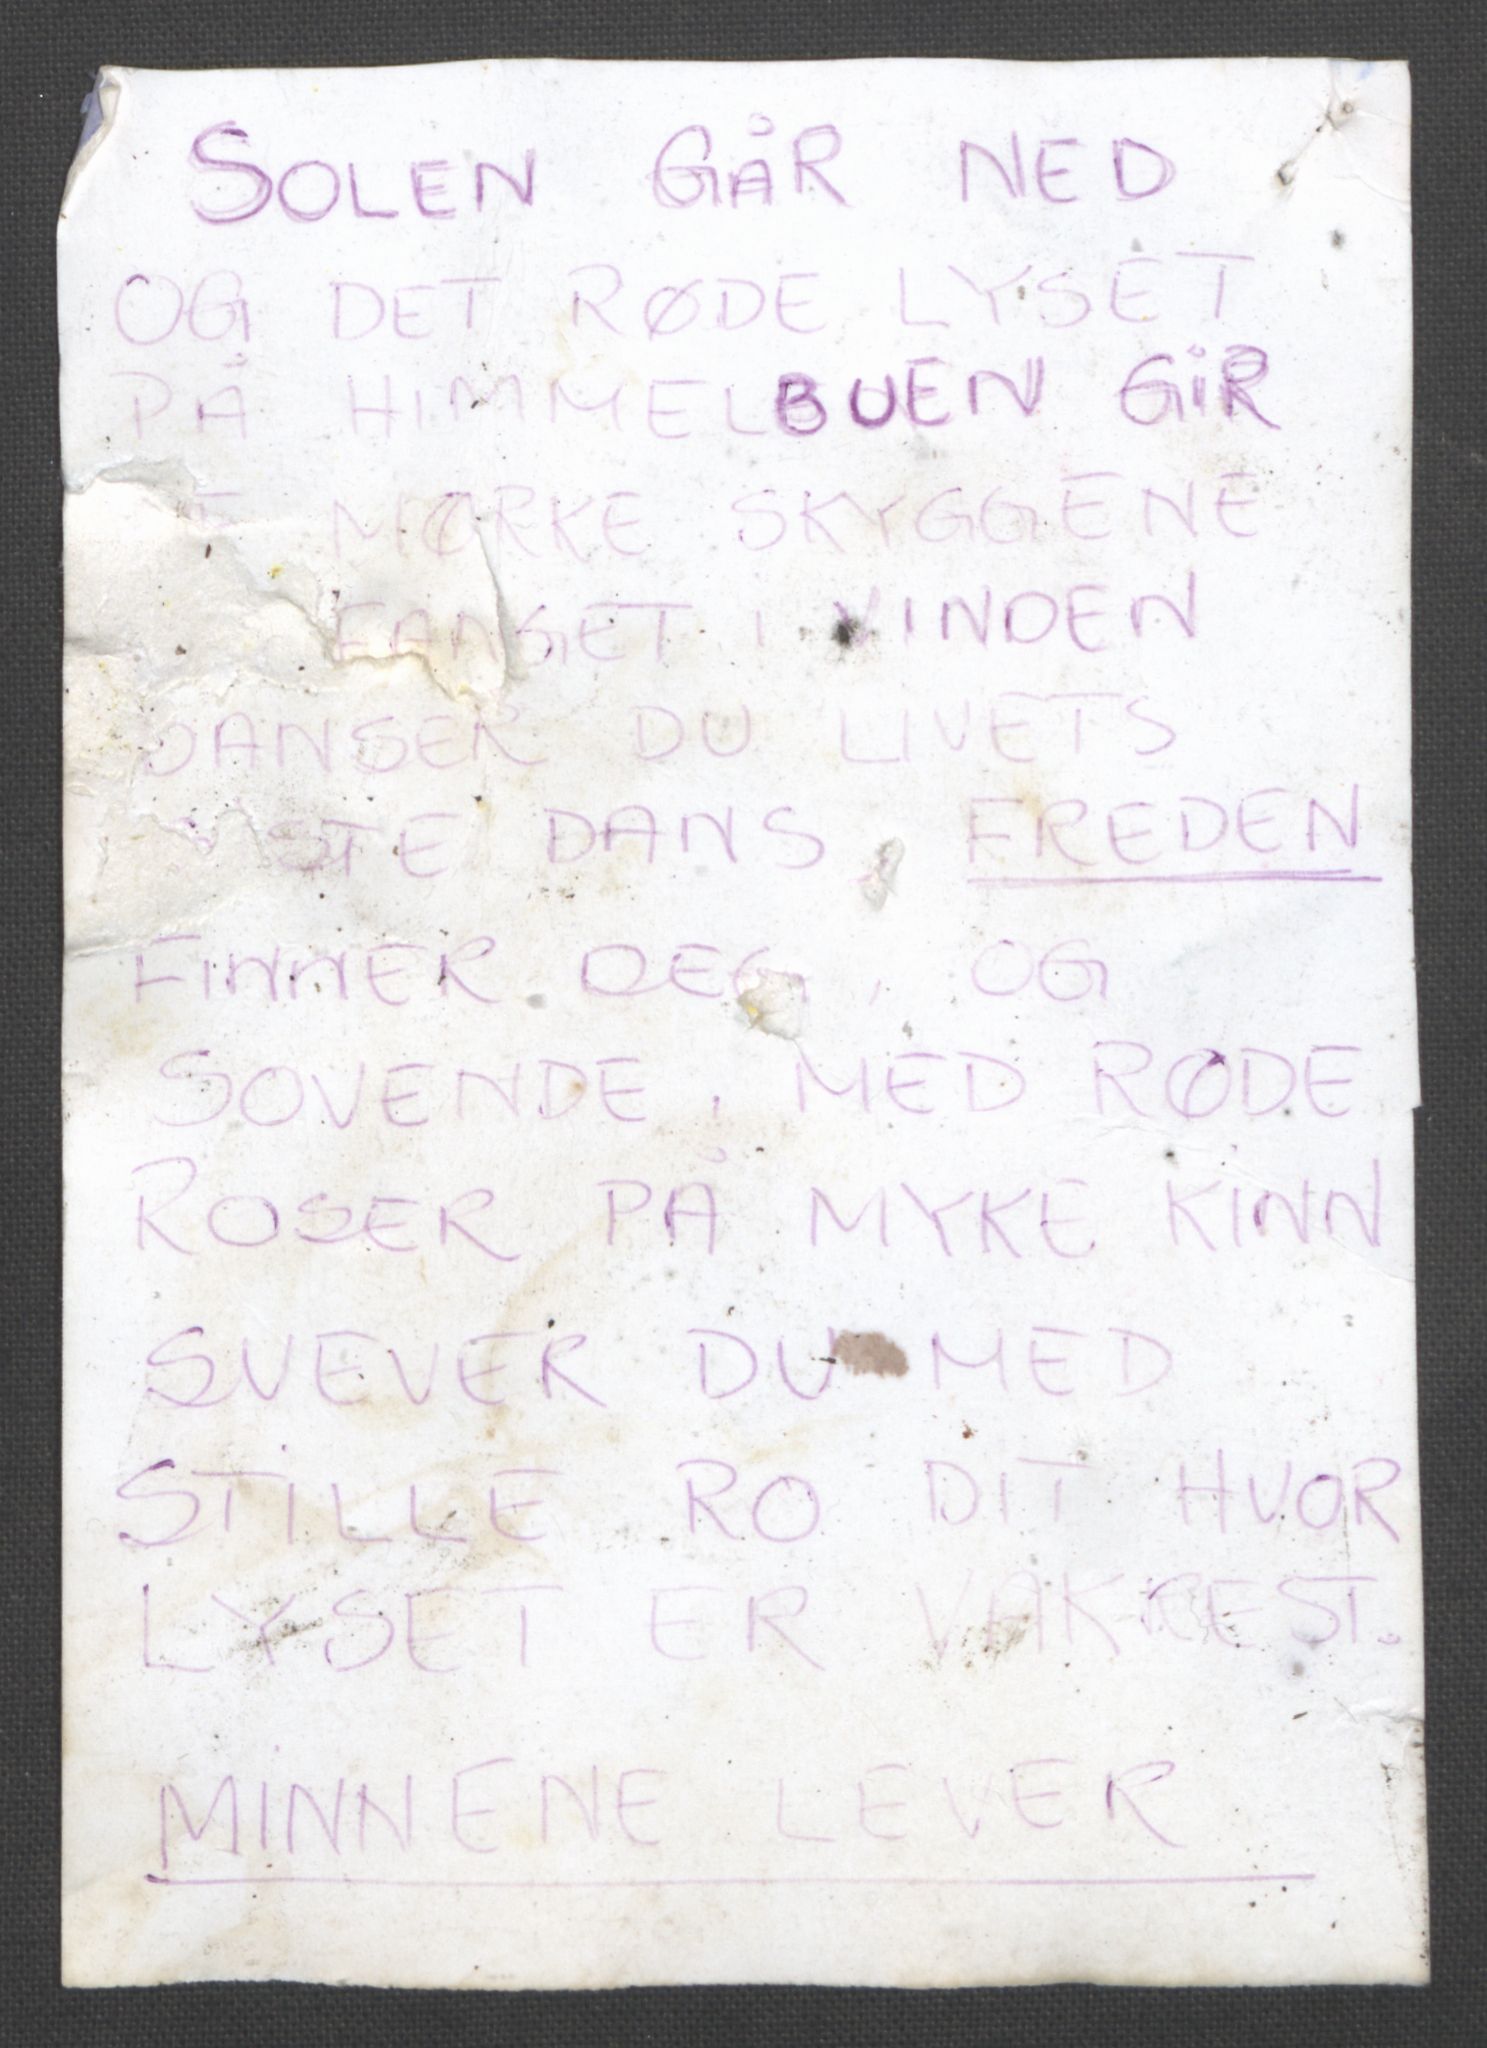 SOLEN GÅR NED
OG DET RØDE LYSET
PÅ HIMMELBUEN GIR
MØRKE SKYGGENE
FANGET I VINDEN
DANSER DU LIVETS
DANS, FREDEN
FINNER DEG, OG
SOVENDE, MED RØDE
ROSER PÅ MYKE KINN
SVEVER DU MED
STILLE RO DIT HVOR
LYSET ER VAKREST.
MINNENE LEVER